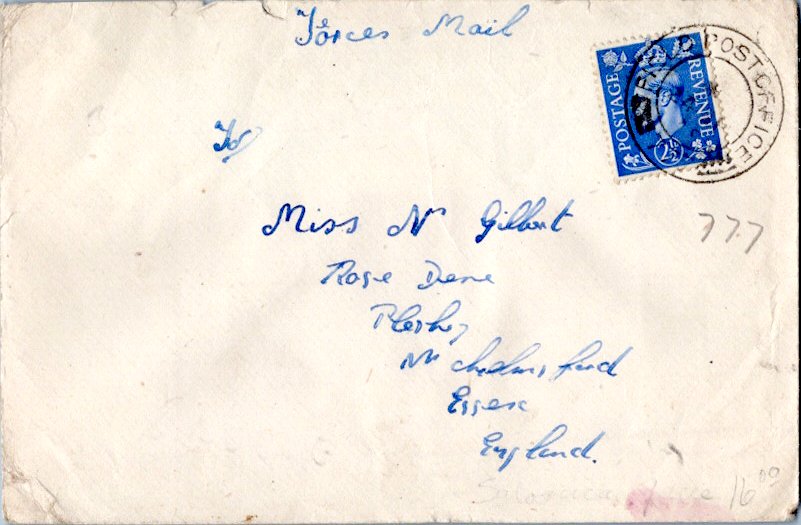 Forces Mail
POSTAGE
REVENUE
2½
FIELD POST OFFICE
To/
Miss N Gilbert
777
Rose Dene
Pleshey
Nr chelmsford
Essex
England.
16 00